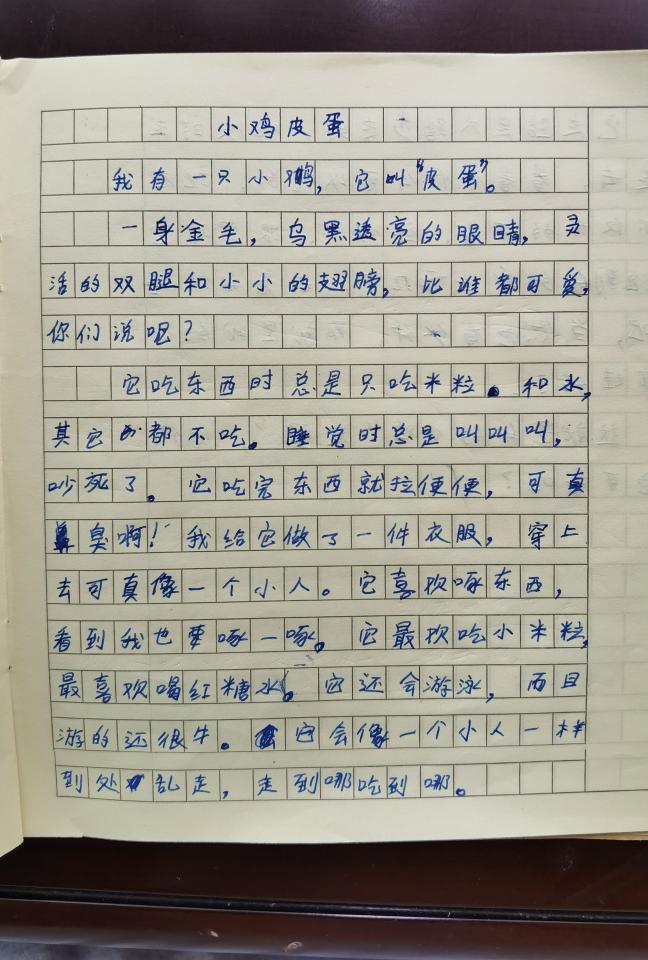 小鸡皮蛋
我有一只小鹅，它叫“皮蛋”。
一身金毛，乌黑透亮的眼睛，灵
活的双腿和小小的翅膀，比谁都可爱，
你们说呢？
它吃东西时总是只吃米粒。和水，
其它都不吃。睡觉时总是叫叫叫，
吵死了。它吃完东西就拉便便，可真
臭啊！我给它做了一件衣服，穿上
去可真像一个小人。它喜欢啄东西，
看到我也要啄一啄。它最欢吃小米粒，
最喜欢喝红糖水。它还会游泳，而且
游的还很牛。它会像一个小人一样
到处乱走，走到哪吃到哪。